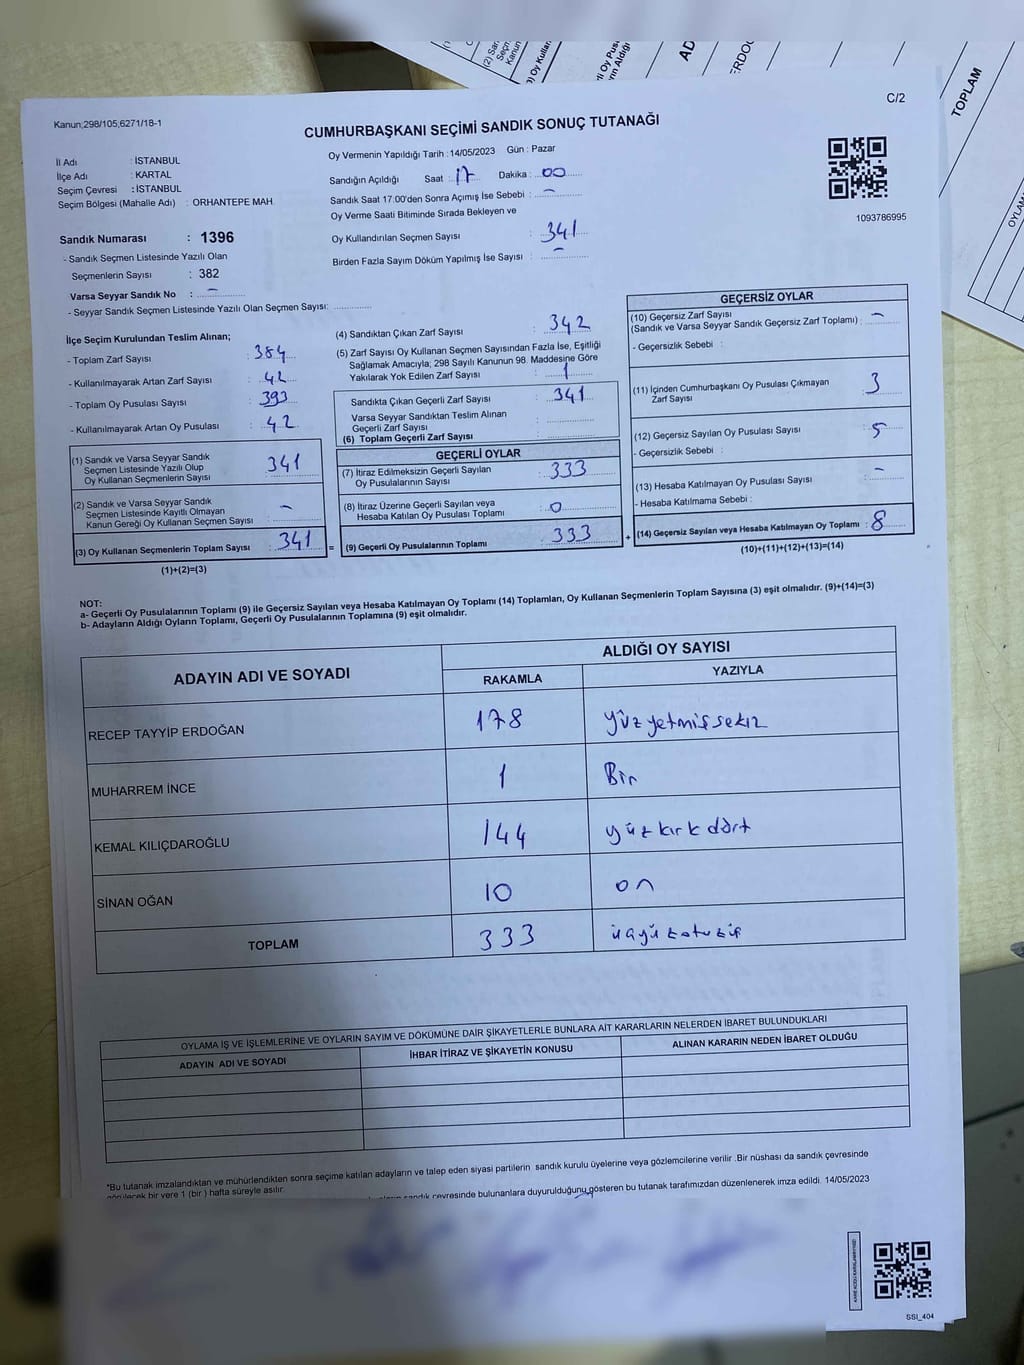 C/2
Kanun;298/105;6271/18-1
CUMHURBAŞKANI SEÇİMİ SANDIK SONUÇ TUTANAĞI
İl Adı : İSTANBUL
İlçe Adı : KARTAL
Seçim Çevresi : İSTANBUL
Seçim Bölgesi (Mahalle Adı) : ORHANTEPE MAH.
Oy Vermenin Yapıldığı Tarih : 14/05/2023 Gün : Pazar
Sandığın Açıldığı Saat : 17 Dakika : 00
Sandık Saat 17.00'den Sonra Açımış İse Sebebi : -
Oy Verme Saati Bitiminde Sırada Bekleyen ve
Oy Kullandırılan Seçmen Sayısı : 341
Birden Fazla Sayım Döküm Yapılmış İse Sayısı : -
1093786995
Sandık Numarası : 1396
- Sandık Seçmen Listesinde Yazılı Olan
Seçmenlerin Sayısı : 382
Varsa Seyyar Sandık No : -
- Seyyar Sandık Seçmen Listesinde Yazılı Olan Seçmen Sayısı:
İlçe Seçim Kurulundan Teslim Alınan;
- Toplam Zarf Sayısı : 384
- Kullanılmayarak Artan Zarf Sayısı : 42
- Toplam Oy Pusulası Sayısı : 393
- Kullanılmayarak Artan Oy Pusulası : 42
(1) Sandık ve Varsa Seyyar Sandık
Seçmen Listesinde Yazılı Olup
Oy Kullanan Seçmenlerin Sayısı : 341
(2) Sandık ve Varsa Seyyar Sandık
Seçmen Listesinde Kayıtlı Olmayan
Kanun Gereği Oy Kullanan Seçmen Sayısı : -
(3) Oy Kullanan Seçmenlerin Toplam Sayısı : 341
(1)+(2)=(3)
(4) Sandıktan Çıkan Zarf Sayısı : 342
(5) Zarf Sayısı Oy Kullanan Seçmen Sayısından Fazla İse, Eşitliği
Sağlamak Amacıyla; 298 Sayılı Kanunun 98. Maddesine Göre
Yakılarak Yok Edilen Zarf Sayısı : 1
Sandıkta Çıkan Geçerli Zarf Sayısı : 341
Varsa Seyyar Sandıktan Teslim Alınan
Geçerli Zarf Sayısı :
(6) Toplam Geçerli Zarf Sayısı :
GEÇERLİ OYLAR
(7) İtiraz Edilmeksizin Geçerli Sayılan
Oy Pusulalarının Sayısı : 333
(8) İtiraz Üzerine Geçerli Sayılan veya
Hesaba Katılan Oy Pusulası Toplamı : 0
= (9) Geçerli Oy Pusulalarının Toplamı : 333
GEÇERSİZ OYLAR
(10) Geçersiz Zarf Sayısı
(Sandık ve Varsa Seyyar Sandık Geçersiz Zarf Toplamı) : -
- Geçersizlik Sebebi :
(11) İçinden Cumhurbaşkanı Oy Pusulası Çıkmayan
Zarf Sayısı : 3
(12) Geçersiz Sayılan Oy Pusulası Sayısı : 5
- Geçersizlik Sebebi :
(13) Hesaba Katılmayan Oy Pusulası Sayısı : -
- Hesaba Katılmama Sebebi :
+ (14) Geçersiz Sayılan veya Hesaba Katılmayan Oy Toplamı : 8
(10)+(11)+(12)+(13)=(14)
NOT:
a- Geçerli Oy Pusulalarının Toplamı (9) ile Geçersiz Sayılan veya Hesaba Katılmayan Oy Toplamı (14) Toplamları, Oy Kullanan Seçmenlerin Toplam Sayısına (3) eşit olmalıdır. (9)+(14)=(3)
b- Adayların Aldığı Oyların Toplamı, Geçerli Oy Pusulalarının Toplamına (9) eşit olmalıdır.
ADAYIN ADI VE SOYADI ALDIĞI OY SAYISI
RAKAMLA YAZIYLA
RECEP TAYYİP ERDOĞAN 178 yüz yetmiş sekiz
MUHARREM İNCE 1 Bir
KEMAL KILIÇDAROĞLU 144 yüz kırk dört
SİNAN OĞAN 10 on
TOPLAM 333 üçyüzotuzüç
OYLAMA İŞ VE İŞLEMLERİNE VE OYLARIN SAYIM VE DÖKÜMÜNE DAİR ŞİKAYETLERLE BUNLARA AİT KARARLARIN NELERDEN İBARET BULUNDUKLARI
ADAYIN ADI VE SOYADI İHBAR İTİRAZ VE ŞİKAYETİN KONUSU ALINAN KARARIN NEDEN İBARET OLDUĞU
*Bu tutanak imzalandıktan ve mühürlendikten sonra seçime katılan adayların ve talep eden siyasi partilerin sandık kurulu üyelerine veya gözlemcilerine verilir .Bir nüshası da sandık çevresinde
görülecek bir yere 1 (bir ) hafta süreyle asılır.
sandık çevresinde bulunanlara duyurulduğunu gösteren bu tutanak tarafımızdan düzenlenerek imza edildi. 14/05/2023
SSI_404
TOPLAM